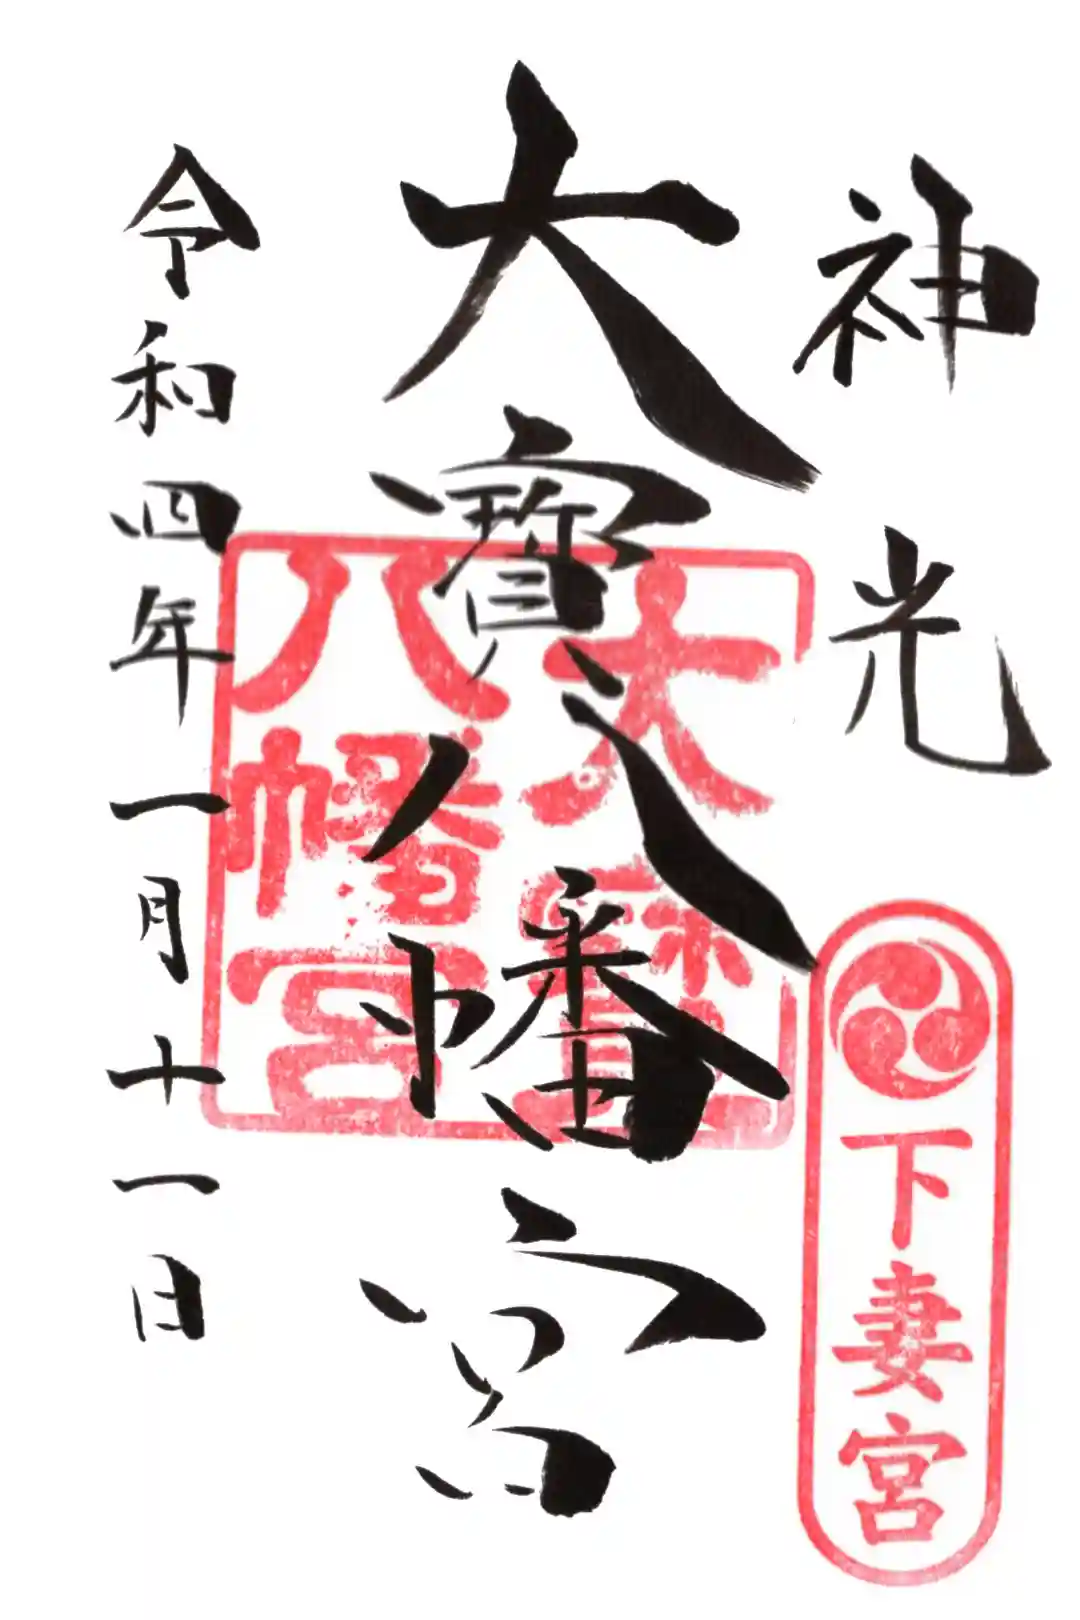 神光
下妻宮
大寶八幡宮
大寶
八幡宮
令和四年一月十一日